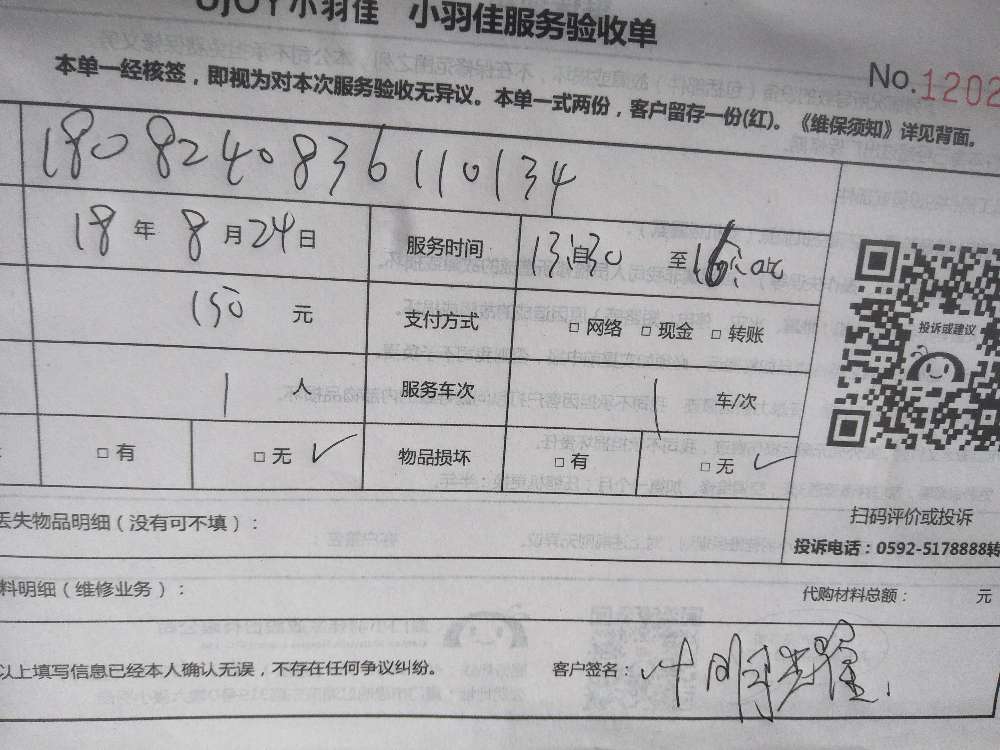 UJOY小羽佳 小羽佳服务验收单
No.1202
本单一经核签，即视为对本次服务验收无异议。本单一式两份，客户留存一份(红)。《维保须知》详见背面。
180824083611 0134
18 年 8 月 24 日 服务时间 13:30 至 16:
150 元 支付方式 □ 网络 □ 现金 □ 转账
投诉或建议
1 人 服务车次 1 车/次
□ 有 □ 无 ✓ 物品损坏 □ 有 □ 无 ✓
扫码评价或投诉
丢失物品明细（没有可不填）：
投诉电话：0592-5178888转
料明细（维修业务）： 代购材料总额： 元
以上填写信息已经本人确认无误，不存在任何争议纠纷。 客户签名：